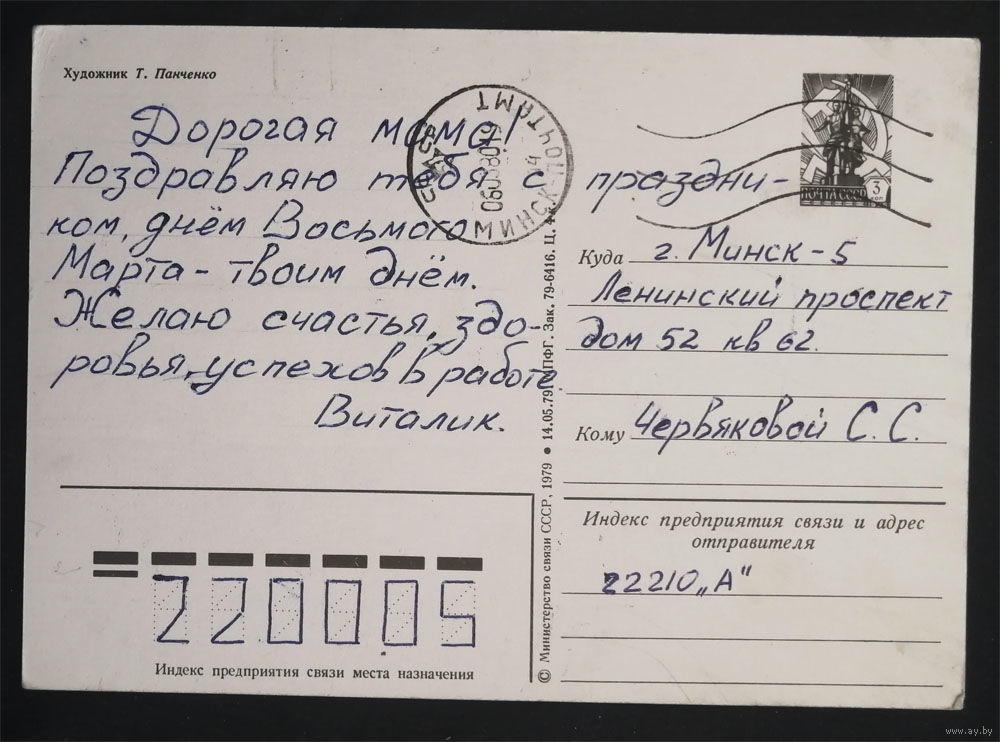 Художник Т. Панченко
Дорогая мама!
Поздравляю тебя с праздни-
ком, днём Восьмого
Марта - твоим днём.
Желаю счастья, здо-
ровья, успехов в работе.
Виталик.
МИНСК-ПОЧТАМТ
ПОЧТА СССР
3
КОП
Куда г. Минск-5
Ленинский проспект
дом 52 кв 62.
Кому Червяковой С. С.
Индекс предприятия связи и адрес
отправителя
22210 „А"
220005
Индекс предприятия связи места назначения
© Министерство связи СССР, 1979 • 14.05.79
ПФГ. Зак. 79-6416. Ц. 4
www.ay.by